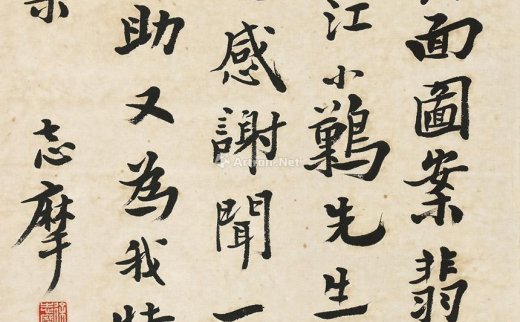 面圖案翡
江小鶼先生
感謝聞一
助又為我
志摩
Artron.Net